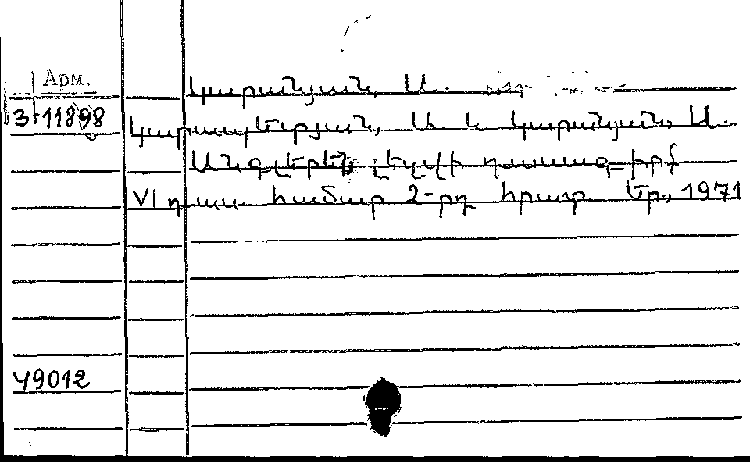 Арм.
Կարանյան, Ա.
3-11898
Կարապետյան, Ա. և Կարանյան, Ա.
Անգլերեն լեզվի դասագիրք
VI դաս. համար 2-րդ հրատ. Եր., 1971
49012